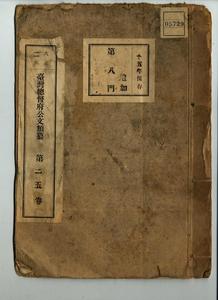 05729
十五年保存
追加
第八門
臺灣總督府公文類纂 第二五卷